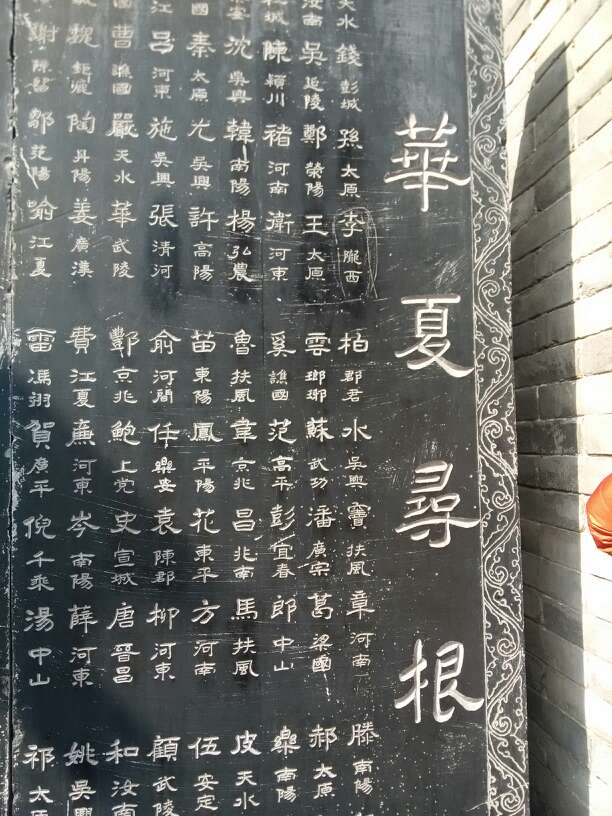 華夏尋根
天水 錢 彭城 孫 太原 李 隴西 柏 郡君 水 吳興 竇 扶風 章 河南 滕 南陽
汝南 吳 延陵 鄭 滎陽 王 太原 雲 瑯琊 蘇 武功 潘 廣宗 葛 梁國 郝 太原
城 陳 穎川 褚 河南 衛 河東 奚 譙國 范 高平 彭 宜春 郎 中山 南陽
沈 吳興 韓 南陽 楊 弘農 魯 扶風 韋 京兆 昌 兆南 馬 扶風 皮 天水
國 秦 太原 尤 吳興 許 高陽 苗 東陽 鳳 平陽 花 東平 方 河南 伍 安定
江 呂 河東 施 吳興 張 清河 俞 河間 任 樂安 袁 陳郡 柳 河東 顧 武陵
國 曹 譙國 嚴 天水 華 武陵 酆 京兆 鮑 上党 史 宣城 唐 晉昌 和 汝南
魏 鉅鹿 陶 丹陽 姜 廣漢 費 江夏 廉 河東 岑 南陽 薛 河東 姚 吳興
謝 陳留 鄒 范陽 喻 江夏 雷 馮翊 賀 廣平 倪 千乘 湯 中山 祁 太原